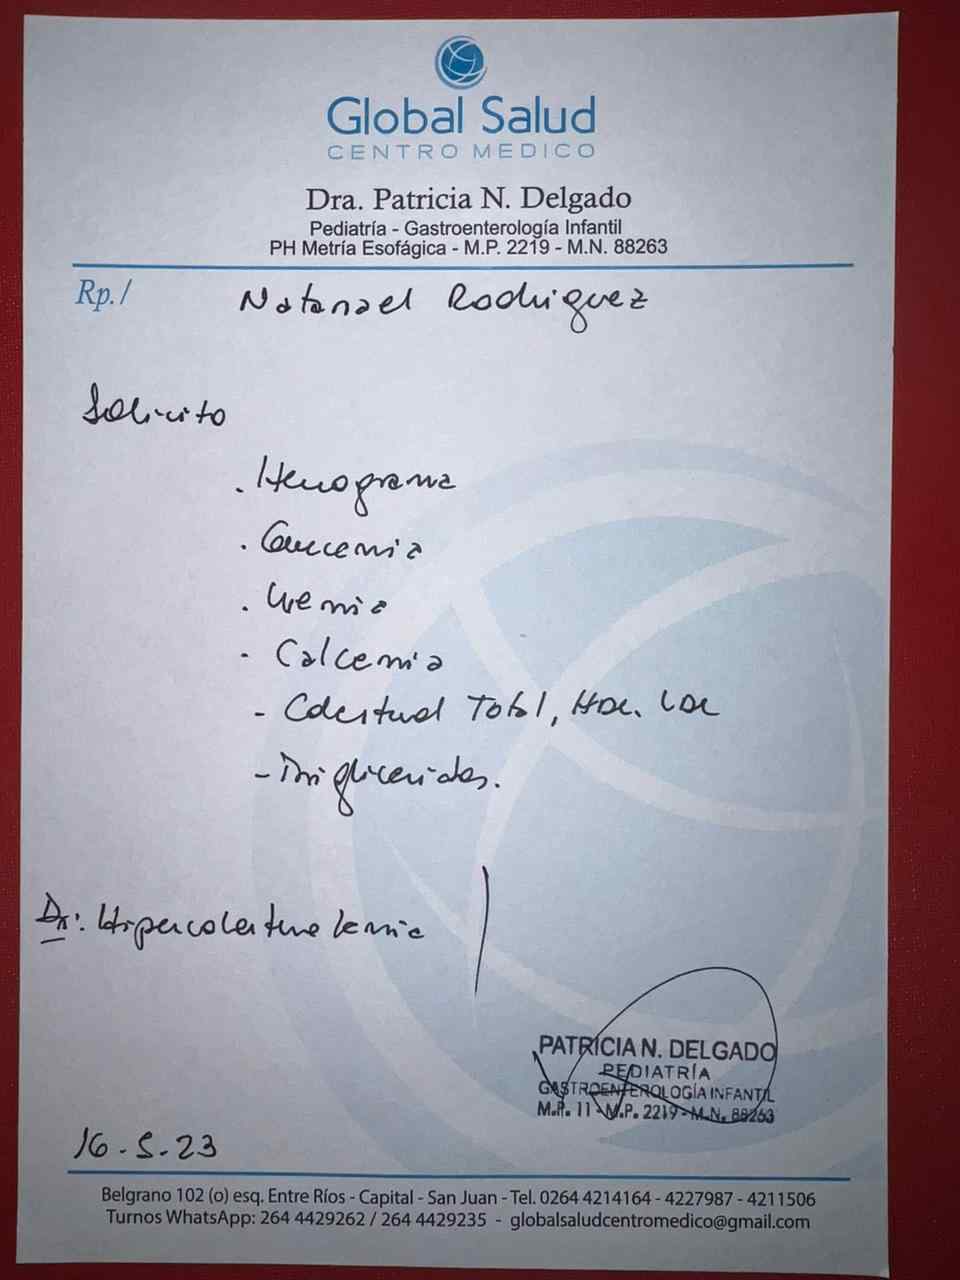 Global Salud
CENTRO MEDICO
Dra. Patricia N. Delgado
Pediatría - Gastroenterología Infantil
PH Metría Esofágica - M.P. 2219 - M.N. 88263
Rp./
Natanael Rodriguez
Solicito
. Hemograma
. Glucemia
. Uremia
- Calcemia
- Colesterol Total, HDL. LDL
- Trigliceridos.
Dx: Hipercolesterolemia
PATRICIA N. DELGADO
PEDIATRÍA
GASTROENTEROLOGÍA INFANTIL
M.P. 11 - M.P. 2219 - M.N. 88263
16-5-23
Belgrano 102 (o) esq. Entre Ríos - Capital - San Juan - Tel. 0264 4214164 - 4227987 - 4211506
Turnos WhatsApp: 264 4429262 / 264 4429235 - globalsaludcentromedico@gmail.com